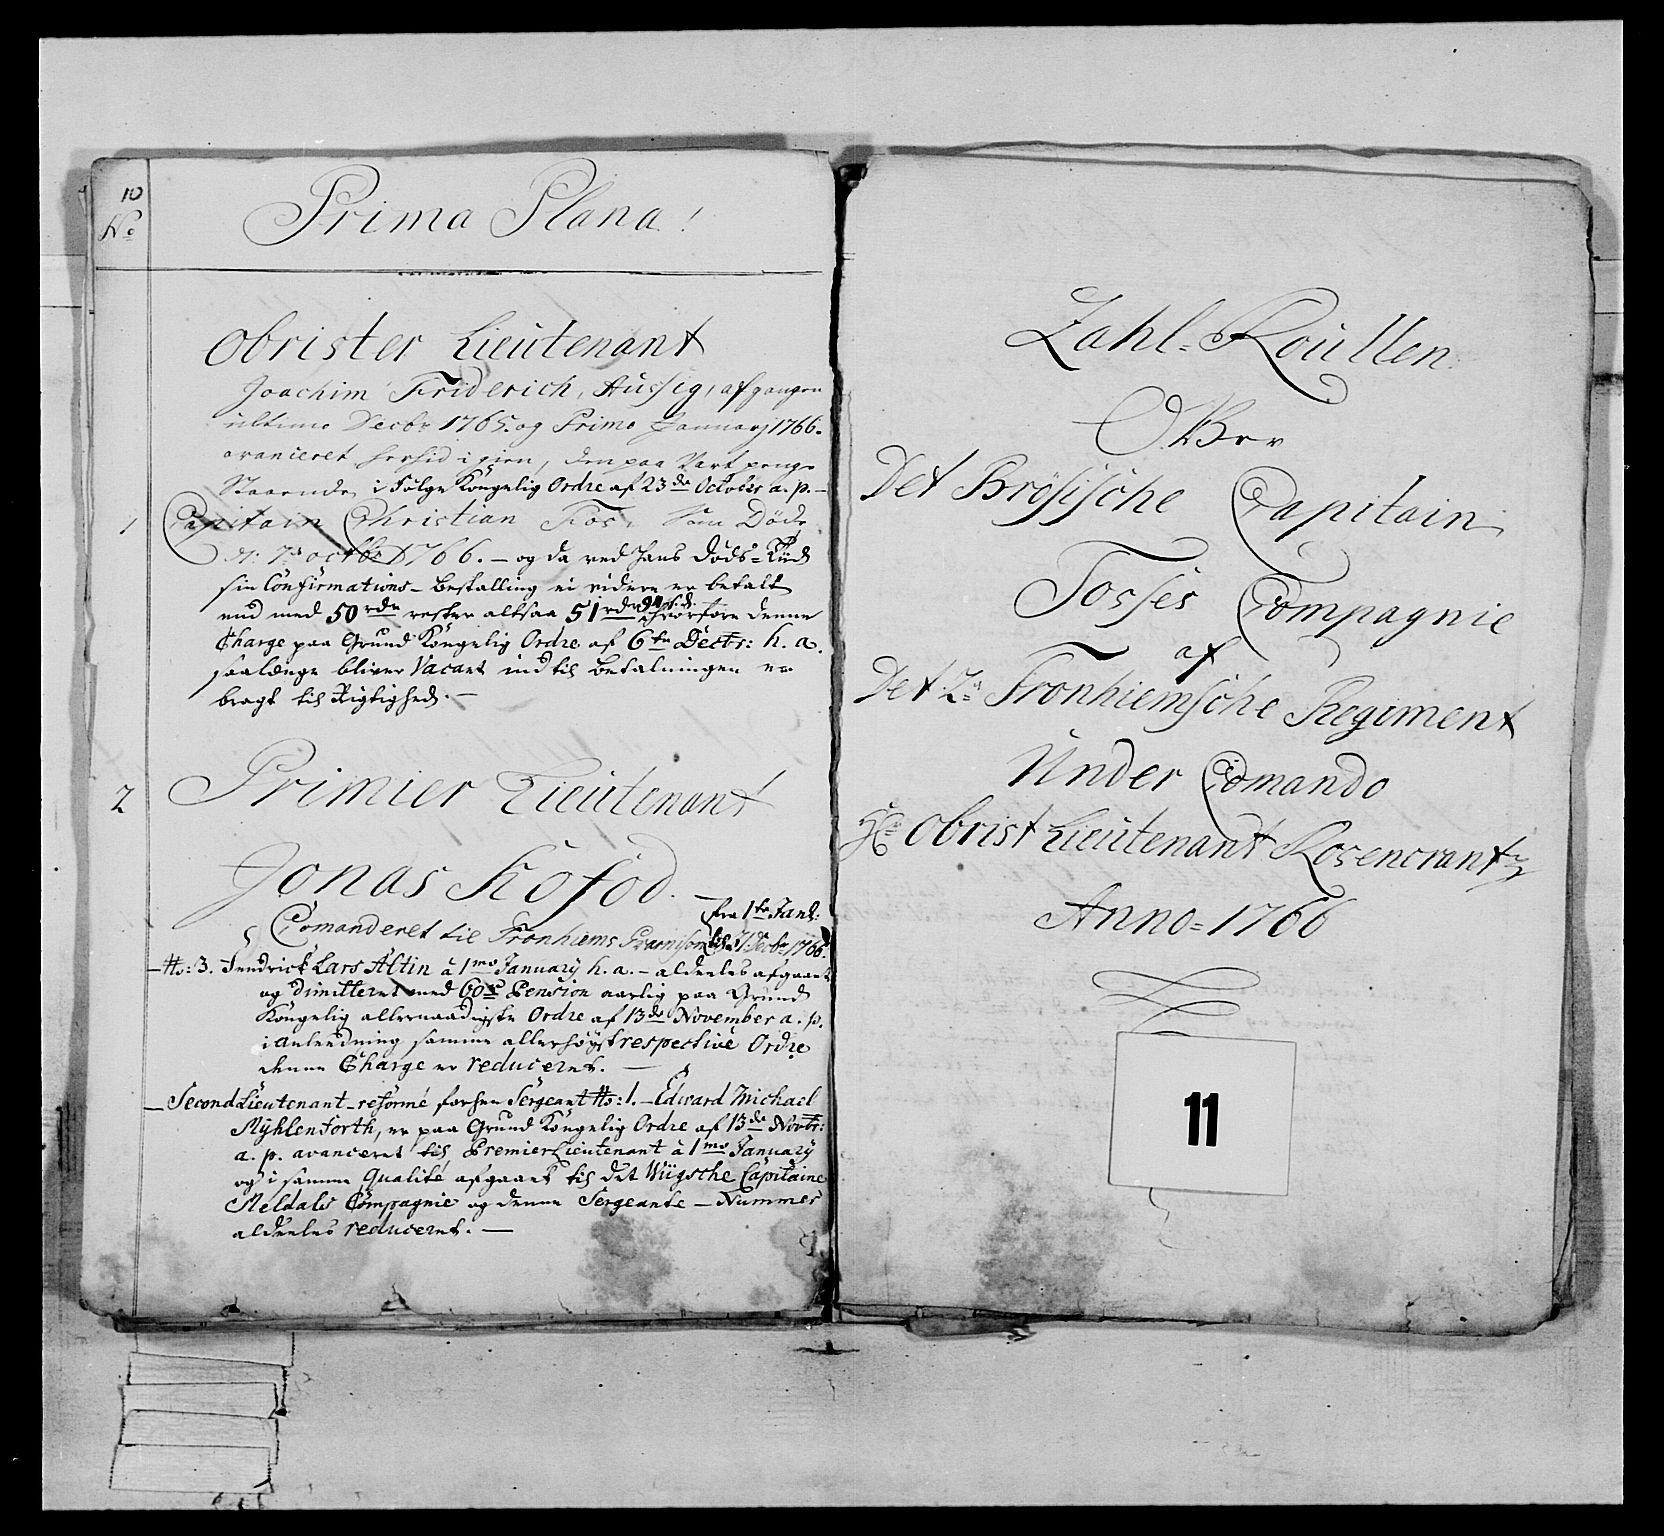 10
No
Prima Plana!
Obrister Lieutenant
Joachim Friderich Aussig, afgangen
ultimo Decbr 1765. og Primo Januarj 1766.
avanceret herhid igien, den paa Vart penge
Staaende i Følge Kongelig Ordre af 23de October a. p. –
1
Capitain Christian Fos, som Døde
d: 7de octbr 1766. – og da ved hans Døds-Tiid
sin Confirmations-bestalling ei videre er betalt
end med 50 rdr rester altsaa 51 rdr hvorfore denne
Charge paa Grund Kongelig Ordre af 6te Decbr: h. a.
saalænge bliver Vacant indtil betalningen er
bragt til Rigtighed. –
2
Primier Lieutenant
Jonas Kofod. –
fra 1te Janu:
Comanderet til Tronhiems Guarnison til Decbr 1766.
– No: 3. Hendrick Lars Altin à 1mo January h. a. – aldeeles afgaaet
og dimitteret med 60 rd Pension aarlig paa Grund
Kongelig allernaadigste Ordre af 13de November a. p.
i anledning samme allerhøyst respective Ordre
denne Charge er reduceret. –
– Second Lieutenant-reformé forhen Sergeant No: 1. – Edvard Michael
Myhlenforth, er paa Grund Kongelig Ordre af 13de Novbr:
a. p. avanceret til Premier Lieutenant à 1mo January
og i samme Qualité afgaaet til det Wügsche Capitaine
Meldals Compagnie og denne Sergeants – Nummer
aldeeles reduceret. –
Zahl-Roullen
Over
Det Brøsische Capitain
Fosses Compagnie
af
Det 2det Tronhiemsche Regiment
Under Comando
Hr Obrist Lieutenant Rosencrantz
Anno = 1766
11